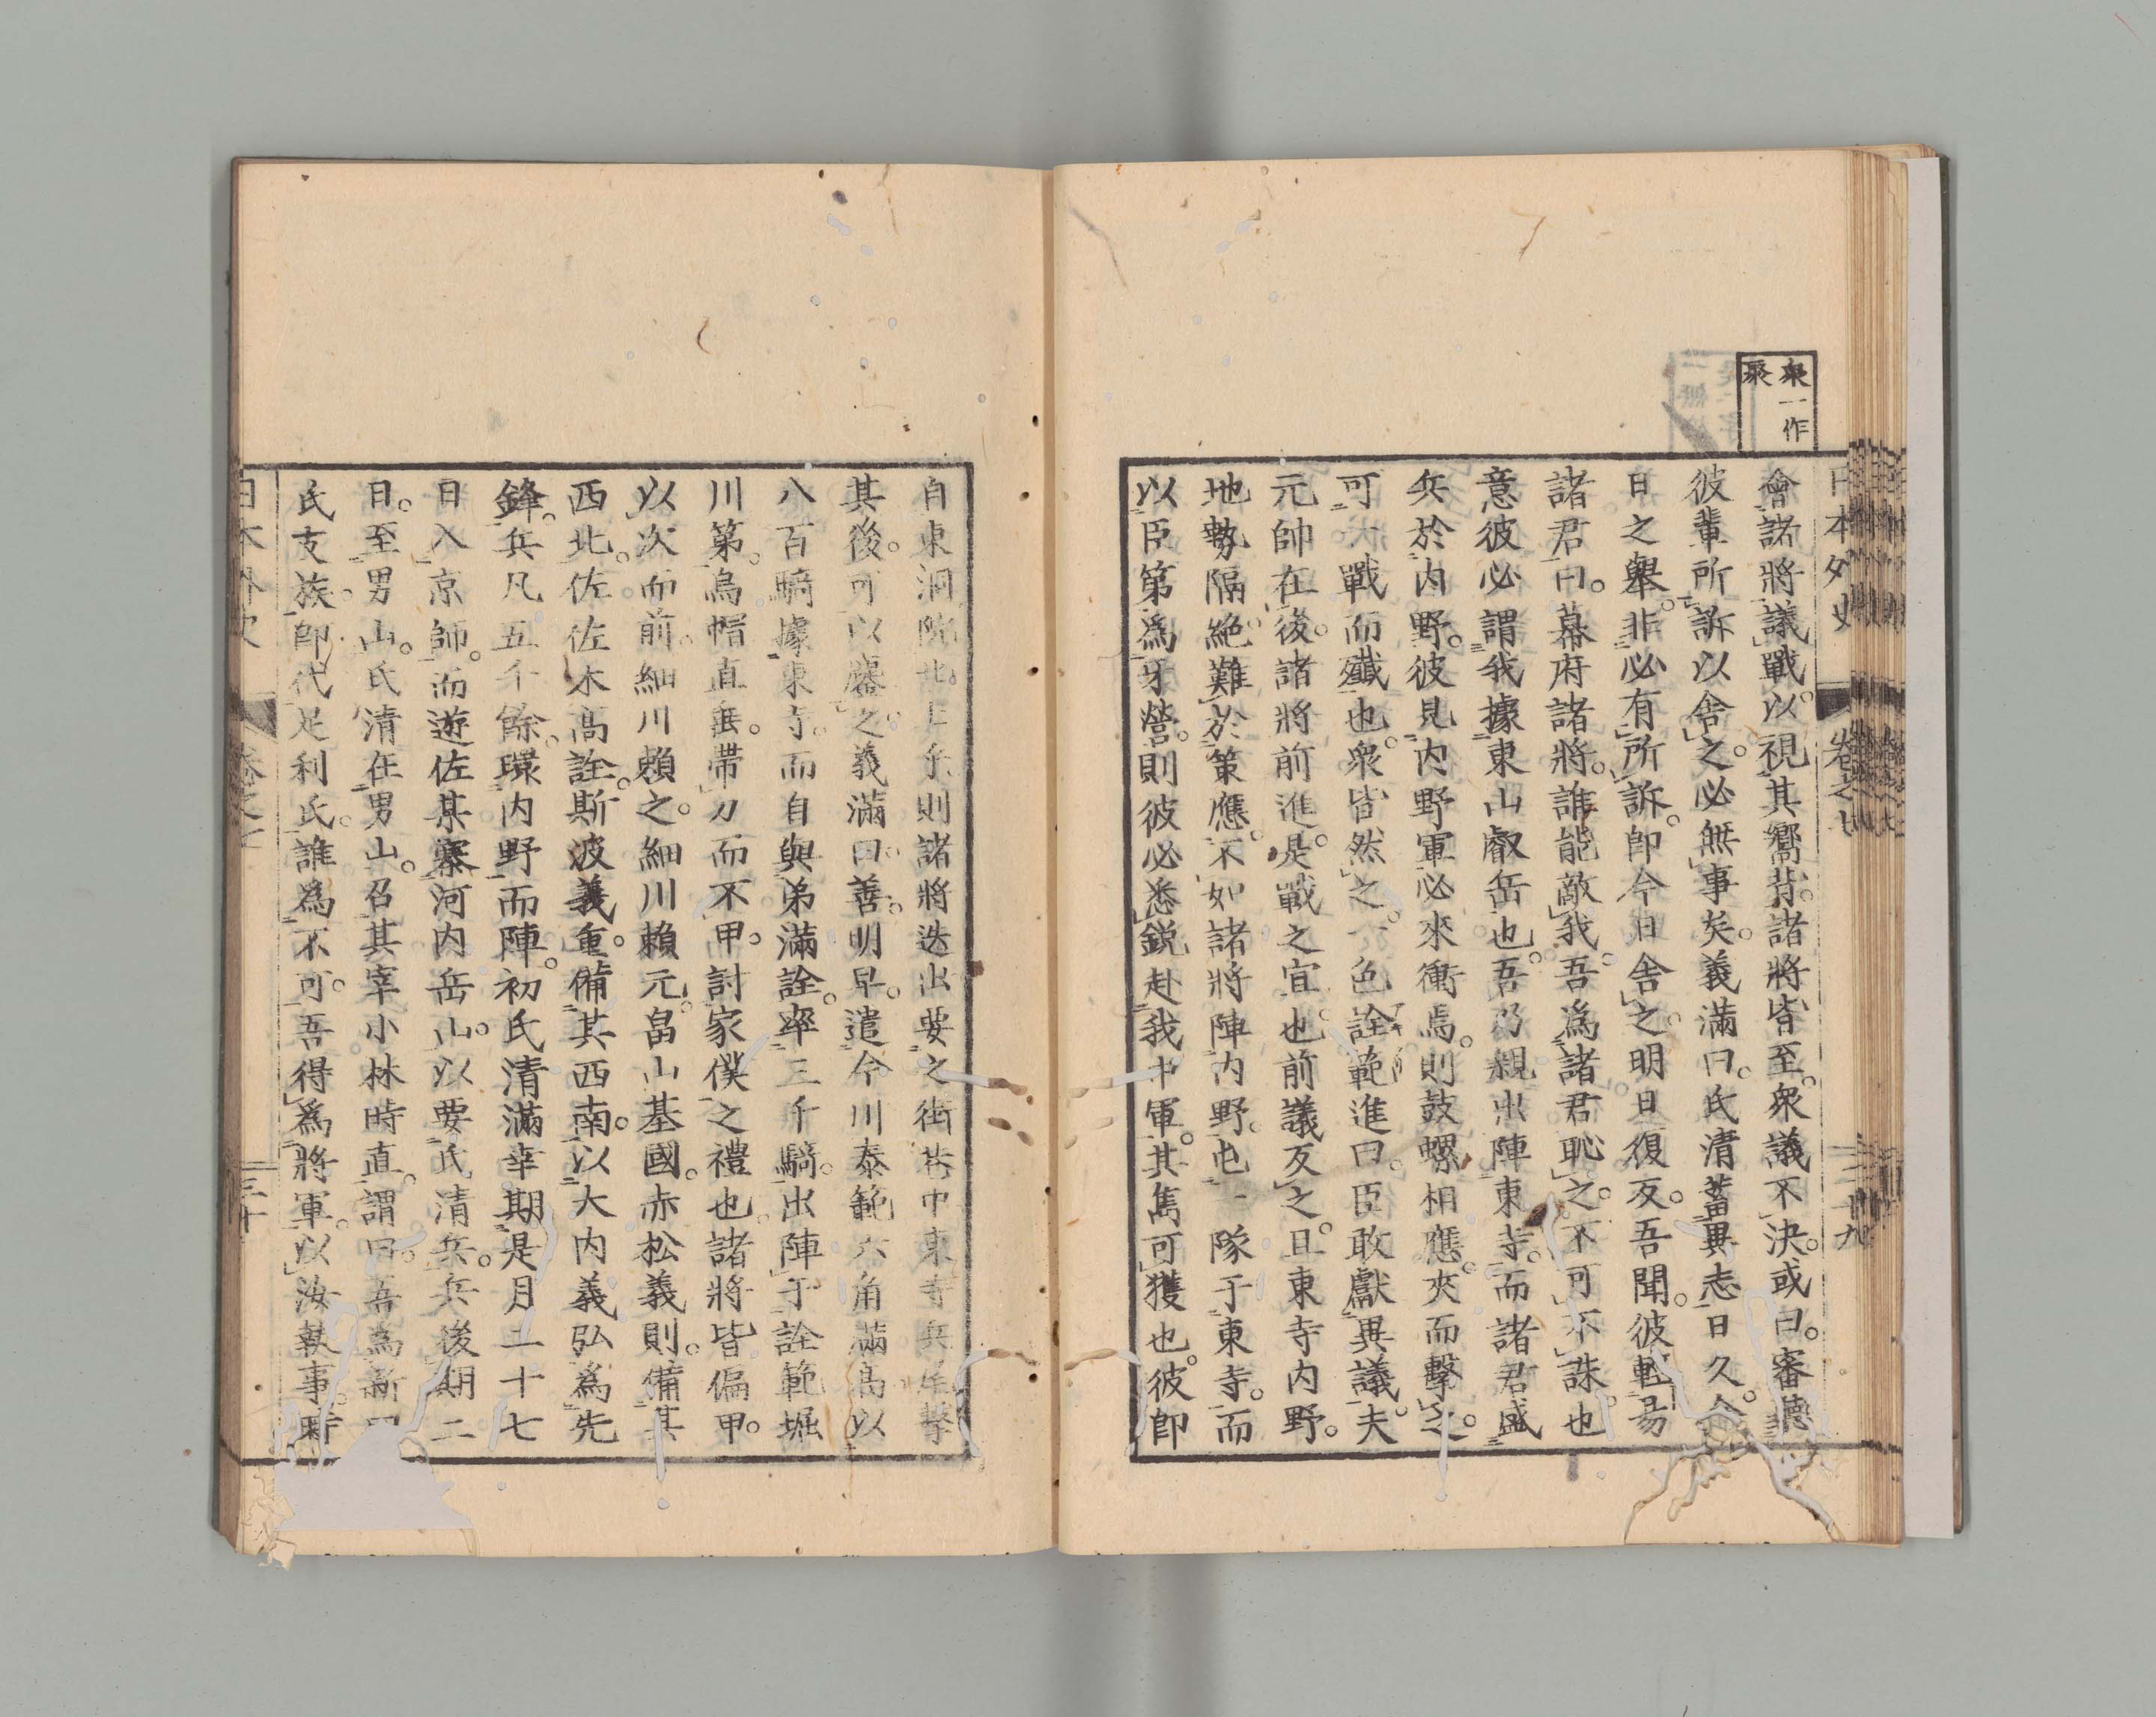 衆一作
聚
日本外史 卷之七 二十九
會諸將議戰。以視其嚮背。諸將皆至。衆議不決。或曰。審聽
彼輩所訴以舍之。必無事矣。義滿曰。氏清蓄異志日久。今
日之舉。非必有所訴。卽今日舍之。明日復反。吾聞。彼輕易
諸君曰。幕府諸將。誰能敵我。吾爲諸君恥之。不可不誅也
意彼必謂我據東山叡岳也。吾乃親出陣東寺。而諸君盛
兵於內野。彼見內野軍必來衝焉。則鼓螺相應。夾而擊之。
可一戰而殲也。衆皆然之。一色詮範進曰。臣敢獻異議。夫
元帥在後。諸將前進。是戰之宜也。前議反之。且東寺內野。
地勢隔絕。難於策應。不如諸將陣內野。屯一隊于東寺。而
以臣第爲牙營。則彼必悉銳赴我中軍。其雋可獲也。彼卽
自東洞院北上乎。則諸將迭出要之街巷中。東寺兵尾擊
其後。可以鏖之。義滿曰。善。明早。遣今川泰範六角滿高以
八百騎據東寺。而自與弟滿詮。率三千騎。出陣于詮範堀
川第。烏帽直垂。帶刀而不甲。討家僕之禮也。諸將皆偏甲。
以次而前。細川賴之。細川賴元。畠山基國。赤松義則。備其
西北。佐佐木高詮。斯波義重。備其西南。以大內義弘爲先
鋒。兵凡五千餘。環內野而陣。初氏清滿幸期是月二十七
日入京師。而遊佐某寨河內岳山。以要氏清兵。兵後期二
日。至男山。氏清在男山。召其宰小林時直。謂曰。吾爲新田
氏支族。卽代足利氏。誰爲不可。吾得爲將軍。以汝執事。時
日本外史 卷之七 三十